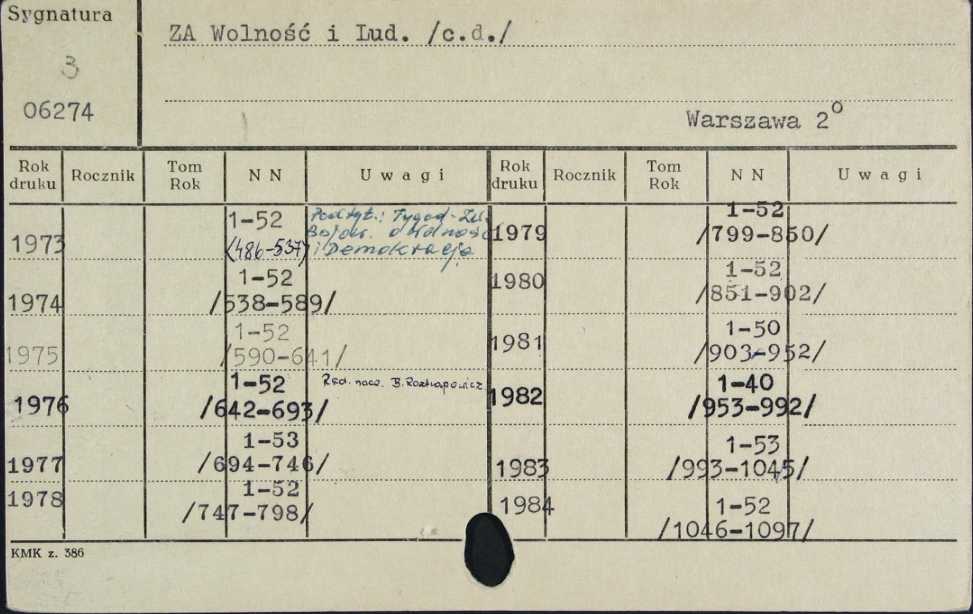 Sygnatura
ZA Wolność i Lud. /c.d./
3
06274
Warszawa 2°
Rok druku Rocznik Tom Rok NN Uwagi Rok druku Rocznik Tom Rok NN Uwagi
1973 1-52 Podtyt.: Tygod.
(486-537) i Demokrację
1974 1-52
/538-589/
1975 1-52
/590-641/
1976 1-52 Red. nacz. B.
/642-693/
1977 1-53
/694-746/
1978 1-52
/747-798/
1979 1-52
/799-850/
1980 1-52
/851-902/
1981 1-50
/903-952/
1982 1-40
/953-992/
1983 1-53
/993-1045/
1984 1-52
/1046-1097/
KMK z. 386